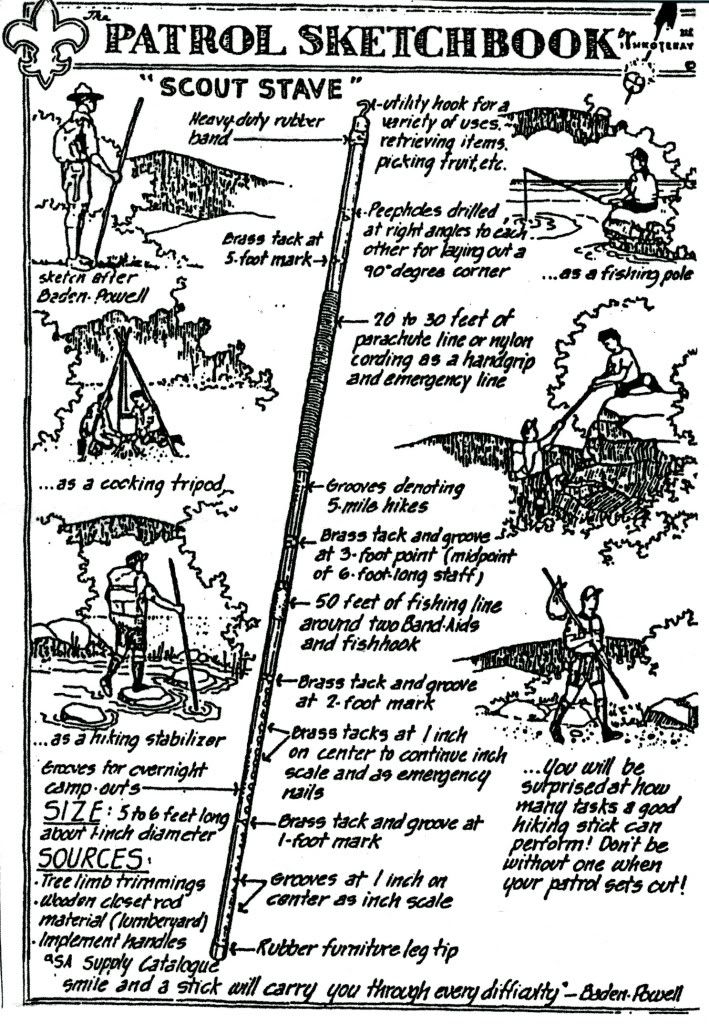 The
PATROL SKETCHBOOK
By
"SCOUT STAVE"
Heavy-duty rubber
band
utility hook for a
variety of uses,
retrieving items,
picking fruit, etc.
Peepholes drilled
at right angles to each
other for laying out a
90° degree corner
Brass tack at
5-foot mark
sketch after
Baden-Powell
...as a fishing pole
20 to 30 feet of
parachute line or nylon
cording as a handgrip
and emergency line
...as a cooking tripod
Grooves denoting
5-mile hikes
Brass tack and groove
at 3-foot point (midpoint
of 6-foot-long staff)
50 feet of fishing line
around two Band-Aids
and fishhook
Brass tack and groove
at 2-foot mark
...as a hiking stabilizer
Brass tacks at 1 inch
on center to continue inch
scale and as emergency
nails
Grooves for overnight
camp-outs
SIZE: 5 to 6 feet long
about 1-inch diameter
Brass tack and groove at
1-foot mark
...You will be
surprised at how
many tasks a good
hiking stick can
perform! Don't be
without one when
your patrol sets out!
SOURCES:
·Tree limb trimmings
·Wooden closet rod
material (lumberyard)
·Implement handles
SA Supply Catalogue
Grooves at 1 inch on
center as inch scale
Rubber furniture leg tip
smile and a stick will carry you through every difficulty" — Baden-Powell